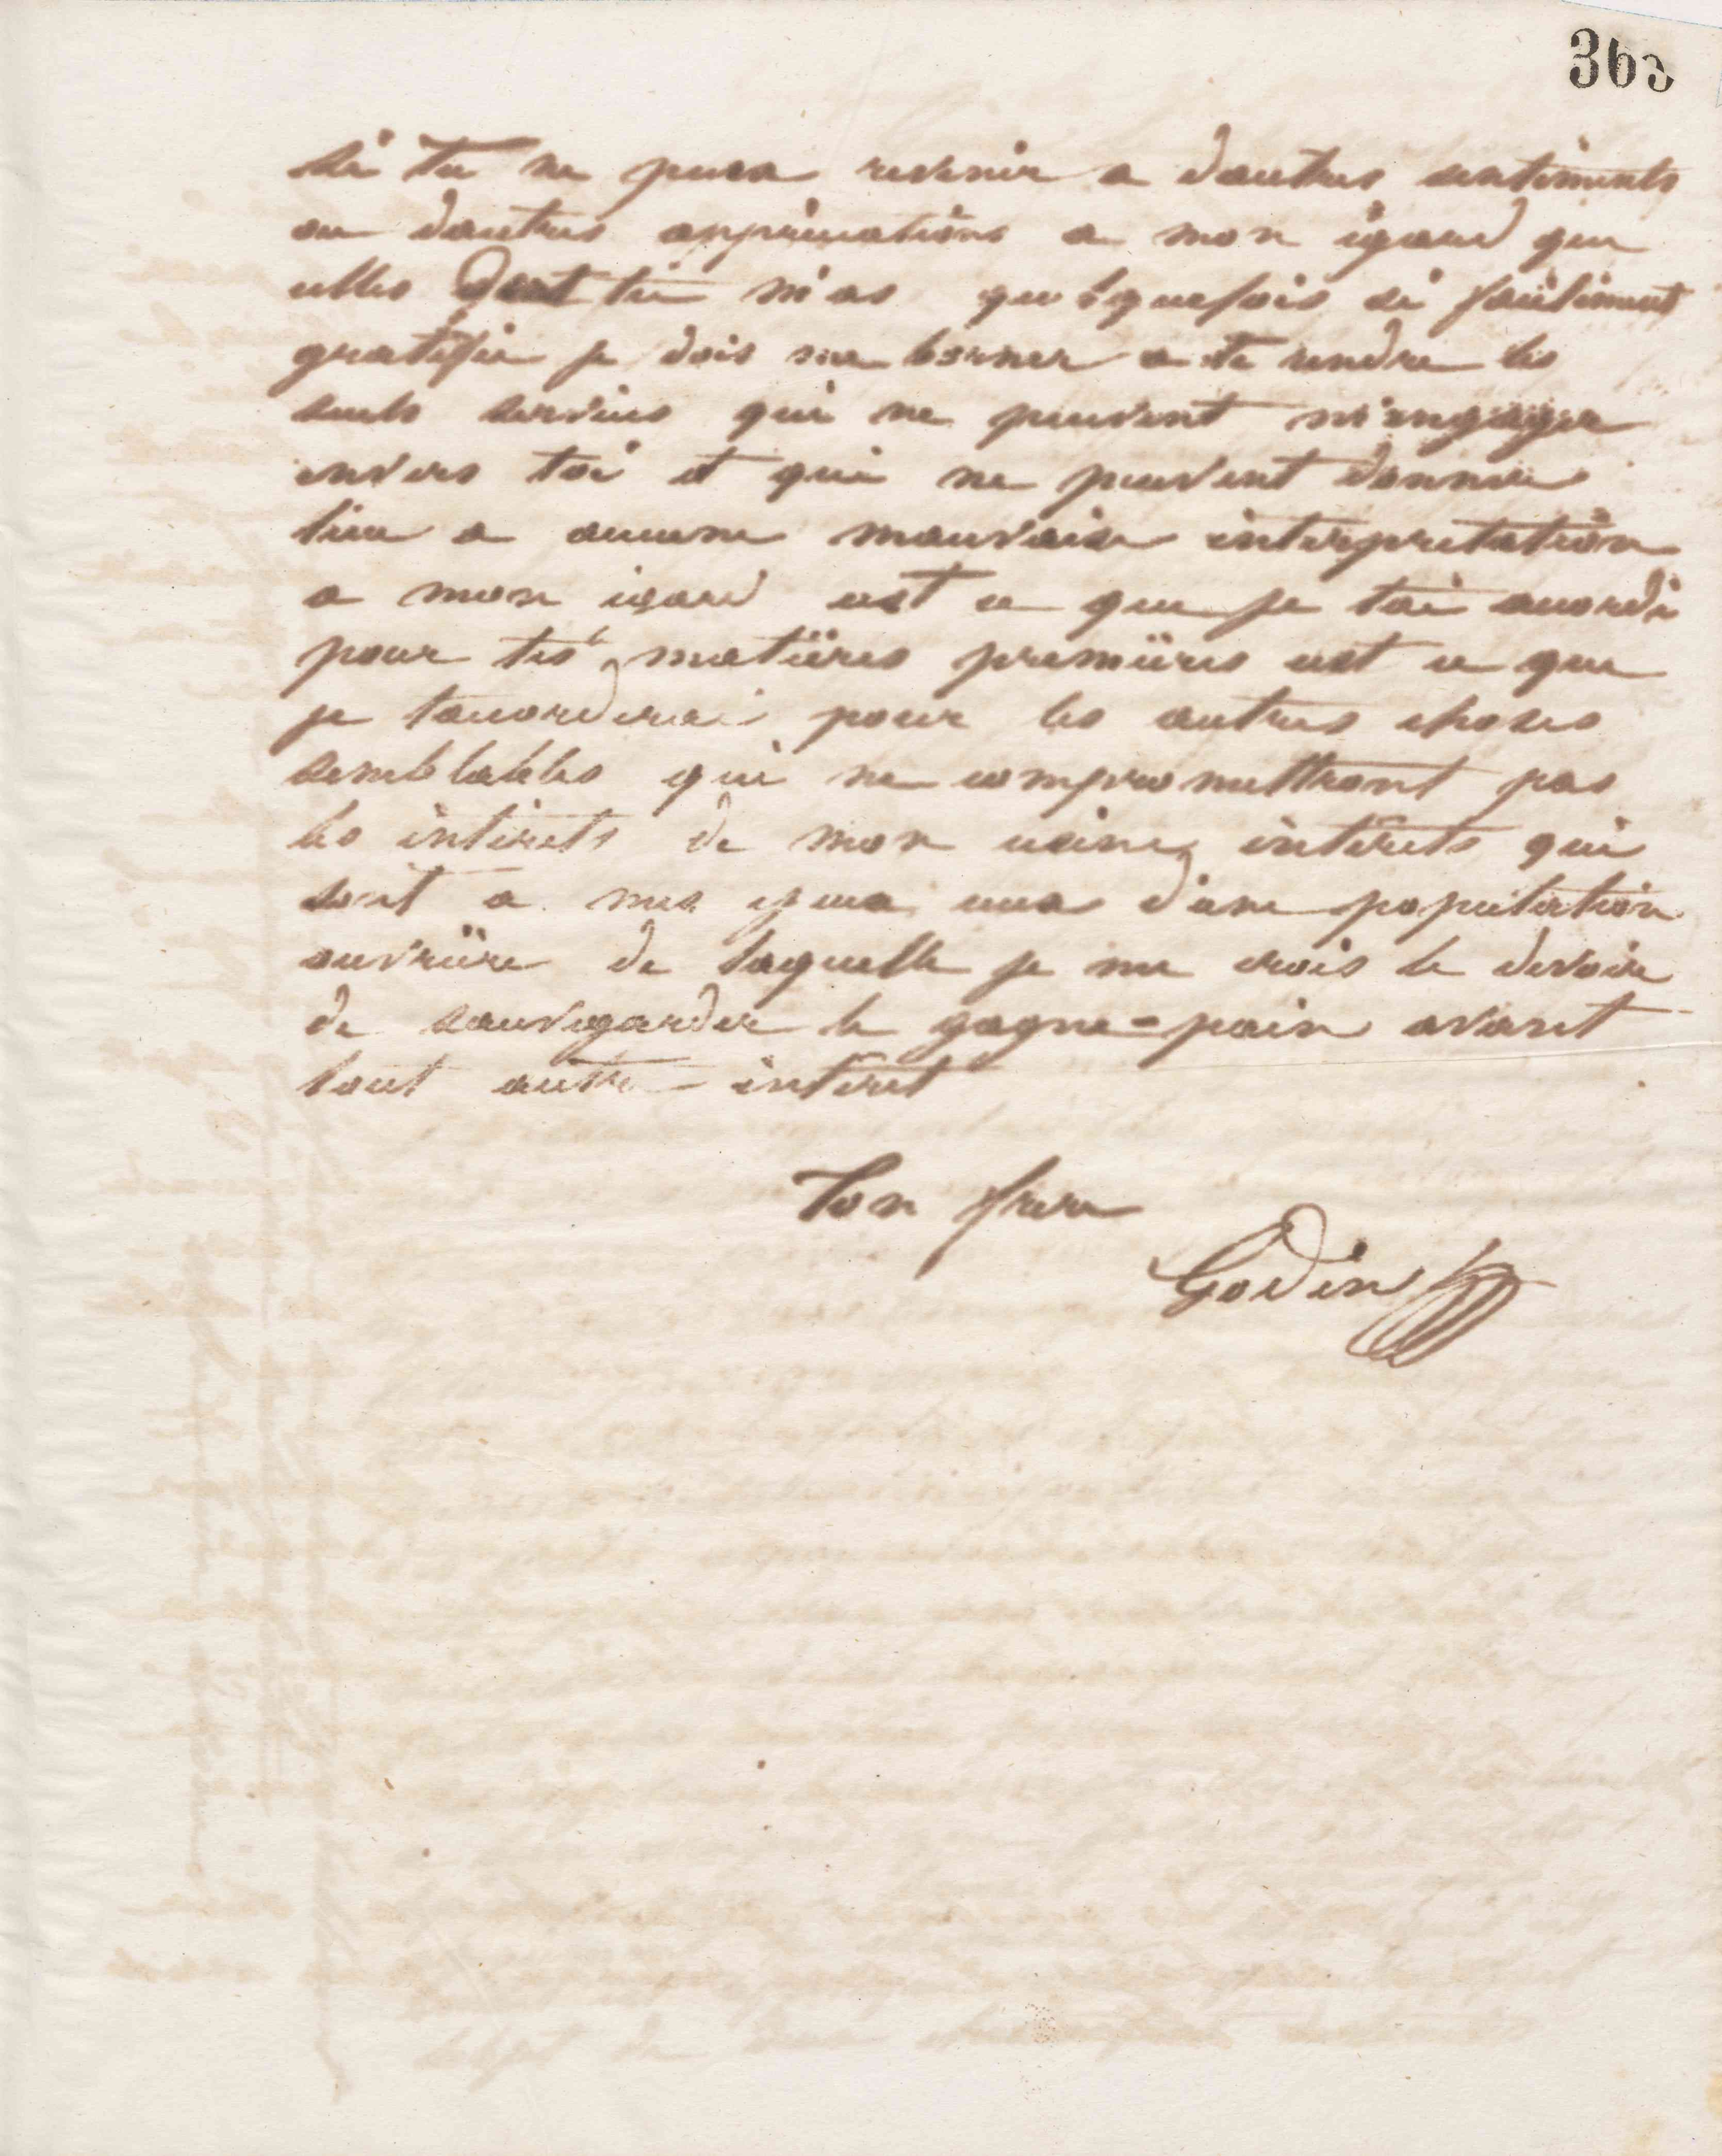 363
si tu ne peux revenir a dautres sentiments
ou dautres appréciations a mon égard que
celles dont tu m'as quelquefois si facilement
gratifié je dois me borner a te rendre les
seuls services qui ne peuvent m'engager
envers toi et qui ne peuvent donner
lieu a aucune mauvaise interprétation
a mon égard cest ce que je tai accordé
pour tes matières premières cest ce que
je taccorderai pour les autres choses
semblables qui ne compromettront pas
les intérêts de mon usine, intérêts qui
sont a mes yeux ceux d'une population
ouvrière de laquelle je me crois le devoir
de sauvegarder le gagne-pain avant
tout autre intérêt
Ton frere
Godin